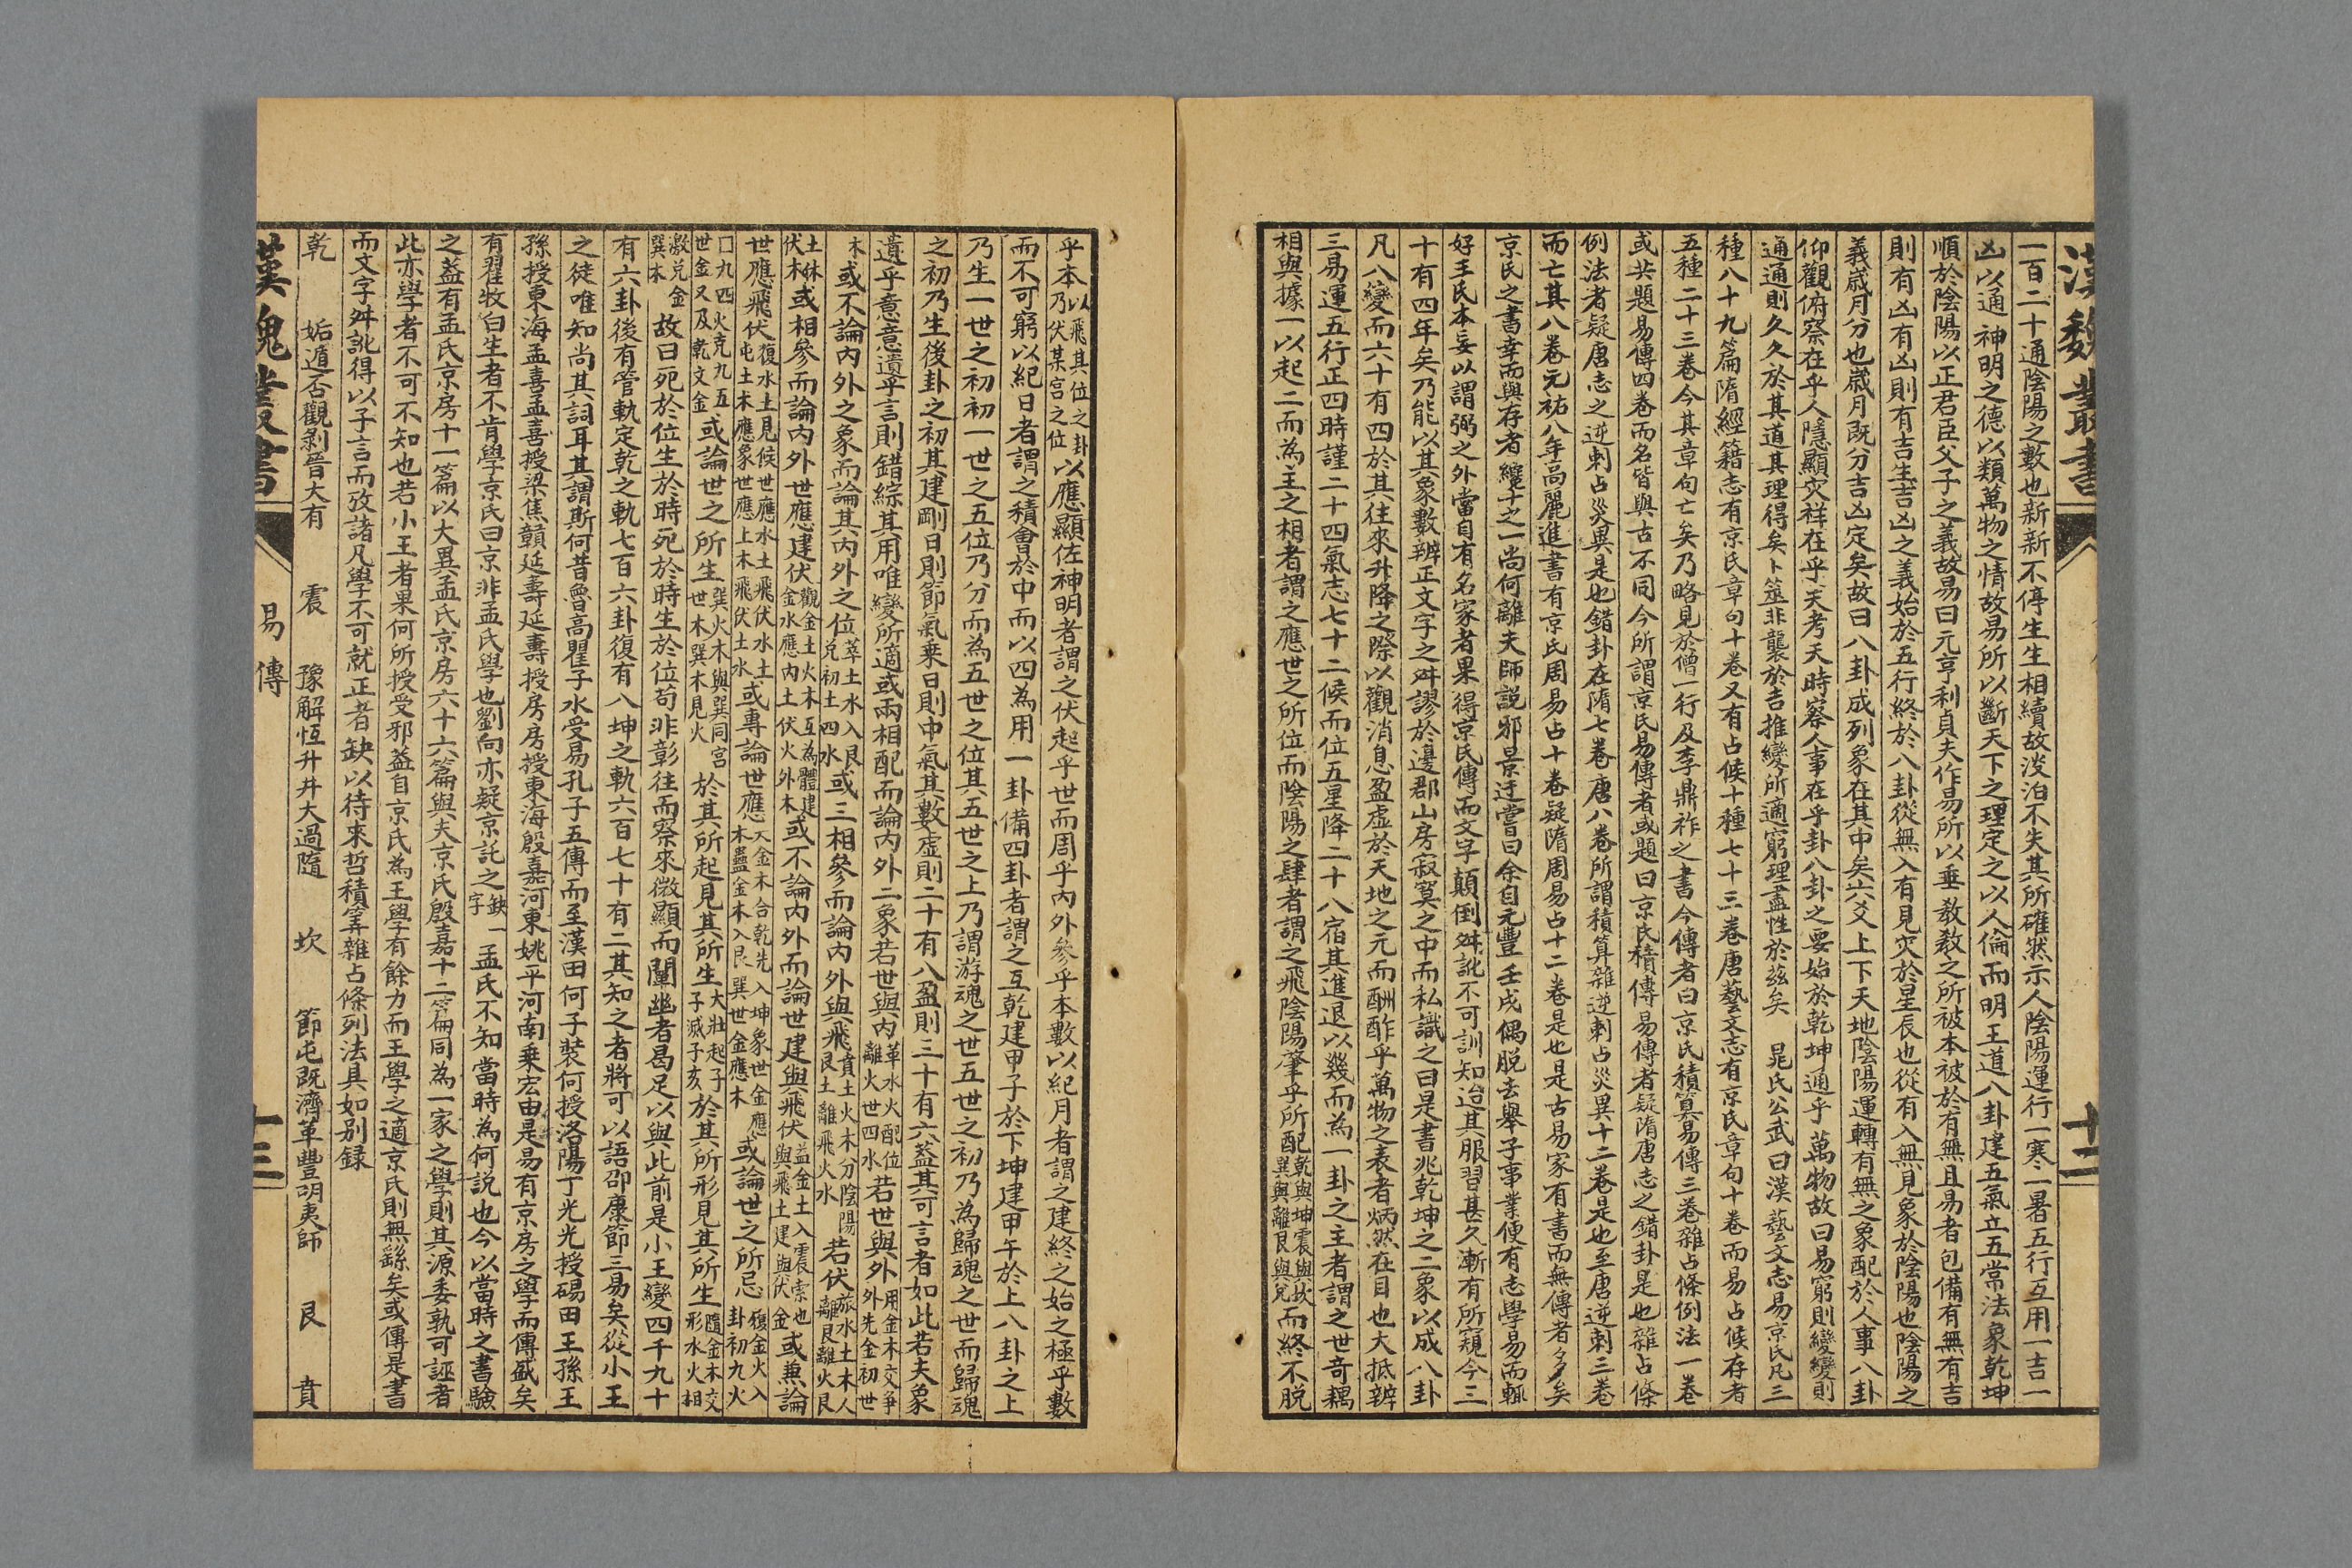 漢魏叢書
十二
一百二十通陰陽之數也新新不停生生相續故淡泊不失其所確然示人陰陽運行一寒一暑五行互用一吉一
凶以通神明之德以類萬物之情故易所以斷天下之理定之以人倫而明王道八卦建五氣立五常法象乾坤
順於陰陽以正君臣父子之義故易曰元亨利貞夫作易所以垂教教之所被本被於有無且易者包備有無有吉
則有凶有凶則有吉生吉凶之義始於五行終於八卦從無入有見灾於星辰也從有入無見象於陰陽也陰陽之
義歲月分也歲月既分吉凶定矣故曰八卦成列象在其中矣六爻上下天地陰陽運轉有無之象配於人事八卦
仰觀俯察在乎人隱顯灾祥在乎天考天時察人事在乎卦八卦之要始於乾坤通乎萬物故曰易窮則變變則
通通則久久於其道其理得矣卜筮非襲於吉推變所適窮理盡性於茲矣　晁氏公武曰漢藝文志易京氏凡三
種八十九篇隋經籍志有京氏章句十卷又有占候十種七十三卷唐藝文志有京氏章句十卷而易占候存者
五種二十三卷今其章句亡矣乃略見於僧一行及李鼎祚之書今傳者曰京氏積算易傳三卷雜占條例法一卷
或共題易傳四卷而名皆與古不同今所謂京氏易傳者或題曰京氏積傳易傳者疑隋唐志之錯卦是也雜占條
例法者疑唐志之逆刺占災異是也錯卦在隋七卷唐八卷所謂積算雜逆刺占災異十二卷是也至唐逆刺三卷
而亡其八卷元祐八年高麗進書有京氏周易占十卷疑隋周易占十二卷是也是古易家有書而無傳者多矣
京氏之書幸而與存者纔十之一尚何離夫師說邪景迂嘗曰余自元豐壬戌偶脫去舉子事業便有志學易而輒
好王氏本妄以謂弼之外當自有名家者果得京氏傳而文字顛倒舛訛不可訓知迨其服習甚久漸有所窺今三
十有四年矣乃能以其象數辨正文字之舛謬於邊郡山房寂寞之中而私識之曰是書兆乾坤之二象以成八卦
凡八變而六十有四於其往來升降之際以觀消息盈虛於天地之元而酬酢乎萬物之表者炳然在目也大抵辨
三易運五行正四時謹二十四氣志七十二候而位五星降二十八宿其進退以幾而為一卦之主者謂之世奇耦
相與據一以起二而為主之相者謂之應世之所位而陰陽之肆者謂之飛陰陽肇乎所配乾與坤震與坎巽與離艮與兌而終不脫
乎本以飛其位之卦乃伏某宮之位以應顯佐神明者謂之伏起乎世而周乎內外參乎本數以紀月者謂之建終之始之極乎數
而不可窮以紀日者謂之積會於中而以四為用一卦備四卦者謂之互乾建甲子於下坤建甲午於上八卦之上
乃生一世之初初一世之五位乃分而為五世之位其五世之上乃謂游魂之世五世之初乃為歸魂之世而歸魂
之初乃生後卦之初其建剛日則節氣柔日則中氣其數虛則二十有八盈則三十有六蓋其可言者如此若夫象
遺乎意意遺乎言則錯綜其用唯變所適或兩相配而論內外二象若世與內革水火配位離火世四水若世與外用金木交爭外先金初世
木或不論內外之象而論其內外之位萃土水入艮兌初土四水或三相參而論內外與飛賁土火木分陰陽艮土離飛火水若伏旅水土木入離艮離火艮
土休伏木或相參而論內外世應建伏觀金土火木互為體建金水應內土伏火外木或不論內外而論世建與飛伏益金土入震索也與飛土建與伏金或兼論
世應飛伏復水土見候世應水土飛伏水土屯土木應象世應上木飛伏土水或專論世應夬金木合乾先入坤象世金應木蠱金木入艮巽世金應木或論世之所忌復金火入卦初九火
囗九四火克九五世金又及乾文金或論世之所生巽火木與巽同宮世木巽木見火於其所起見其所生大壯起子子滅子亥於其所形見其所生隨金木交形水火相
激兌金巽本故曰死於位生於時死於時生於位苟非彰往而察來微顯而闡幽者曷足以與此前是小王變四千九十
有六卦後有管軌定乾之軌七百六卦復有八坤之軌六百七十有二其知之者將可以語邵康節三易矣從小王
之徒唯知尚其詞耳其謂斯何昔魯高瞿子木受易孔子五傳而至漢田何子裝何授洛陽丁光光授碭田王孫王
孫授東海孟喜孟喜授梁焦贛延壽延壽授房房授東海殷嘉河東姚平河南乘宏由是易有京房之學而傳盛矣
有翟牧白生者不肯學京氏曰京非孟氏學也劉向亦疑京託之缺一字孟氏不知當時為何說也今以當時之書驗
之蓋有孟氏京房十一篇以大異孟氏京房六十六篇與夫京氏殷嘉十二篇同為一家之學則其源委孰可誣者
此亦學者不可不知也若小王者果何所授受邪蓋自京氏為王學有餘力而王學之適京氏則無繇矣或傳是書
而文字舛訛得以子言而攷諸凡學不可就正者缺以待來哲積筭雜占條列法具如别録
乾　姤遁否觀剝晉大有　震　豫解恆升井大過隨　坎　節屯既濟革豐明夷師　艮　賁
漢魏叢書
易傳
十三